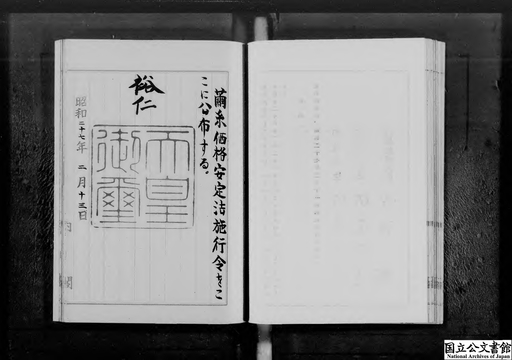 繭糸価格安定法施行令をこ
こに公布する。
裕仁
天皇
御璽
昭和二十七年 二月十三日
内閣
国立公文書館
National Archives of Japan